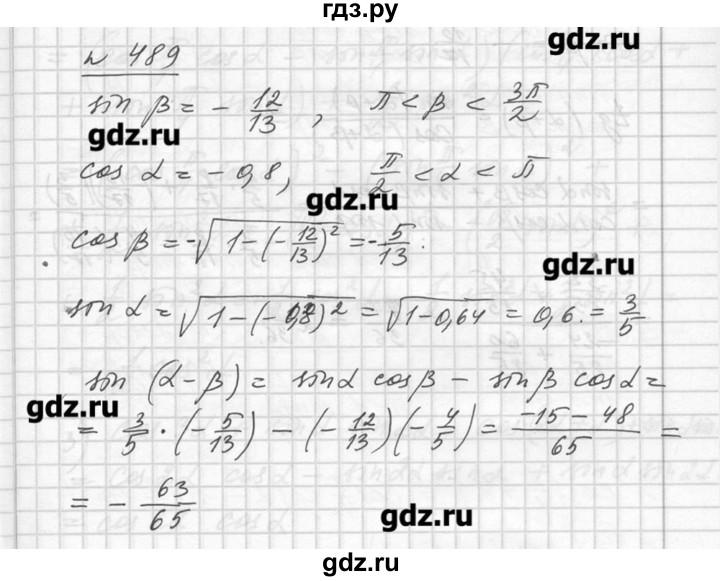 гдз.ру
gdz.ru
№ 489
sin β = - 12/13 , π < β < 3π/2
gdz.ru
cos α = - 0,8, π/2 < α < π
gdz.ru
cos β = -√(1 - (-12/13)²) = -5/13.
gdz.ru
sin α = √(1 - (-0,8)²) = √(1 - 0,64) = 0,6. = 3/5
sin (α - β) = sin α cos β - sin β cos α =
gdz.ru
= 3/5 · (-5/13) - (-12/13)(-4/5) = (-15 - 48)/65 =
= - 63/65
gdz.ru
gdz.ru